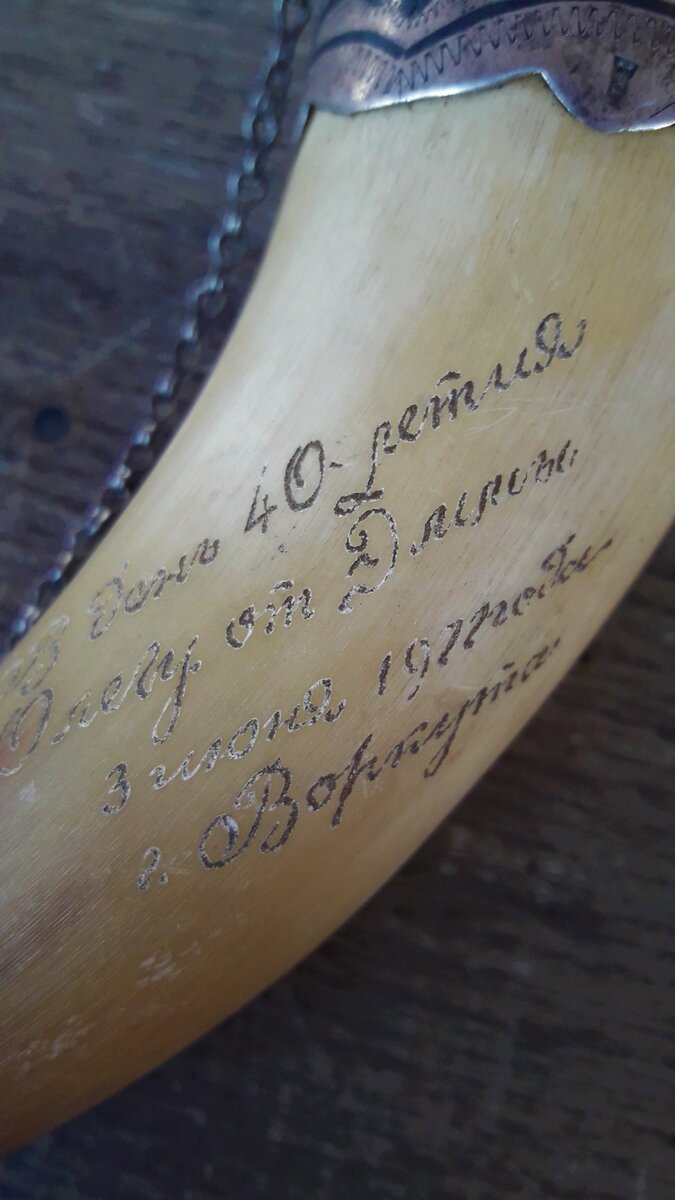 В день 40-летия
Олегу от
3 июня 1977 года
г. Воркута.